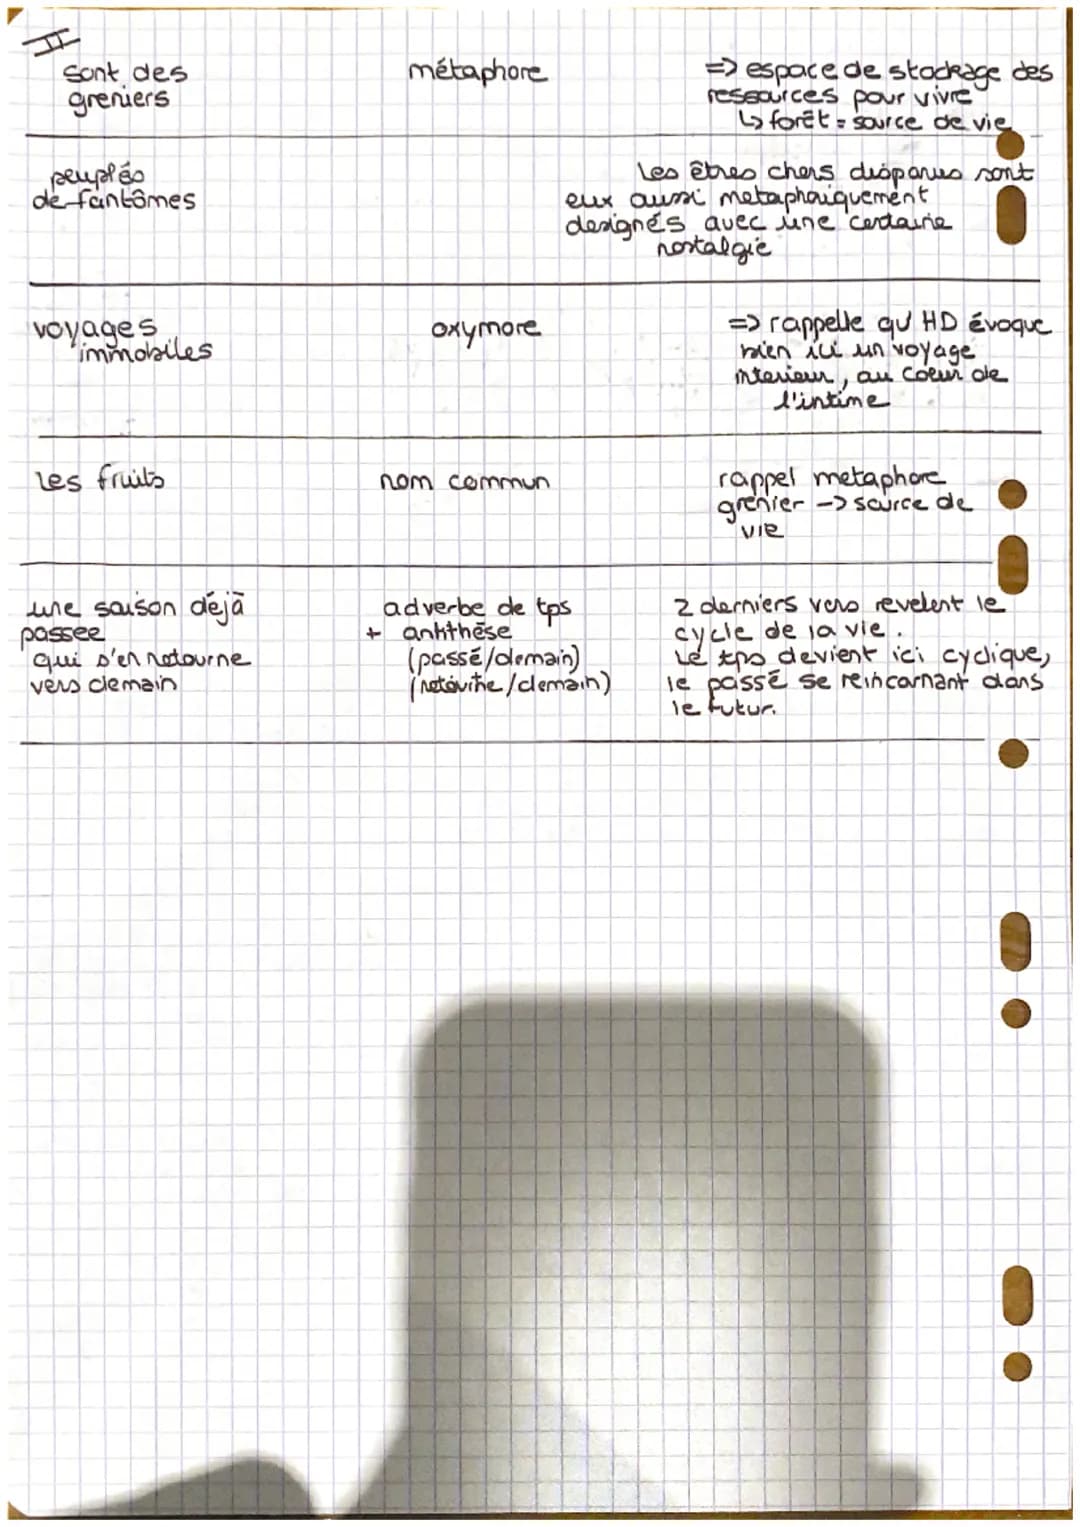 II
sont des
greniers
métaphore
=> espace de stockage des
ressources pour vivre
↳ forêt = source de vie
peuplés
de fantômes
Les êtres chers disparus sont
eux aussi metaphoriquement
designés avec une certaine
nostalgie
voyages
immobiles
oxymore
=> rappelle qu'HD évoque
bien ici un voyage
interieur, au coeur de
l'intime
Les fruits
nom commun
rappel metaphore
grenier -> source de
vie
une saison déjà
passee
qui s'en retourne
vers demain
adverbe de tps
+ antithèse
(passé/demain)
(retourne/demain)
2 derniers vers revelent le
cycle de la vie.
Le tps devient ici cyclique,
le passé se reincarnant dans
le futur.